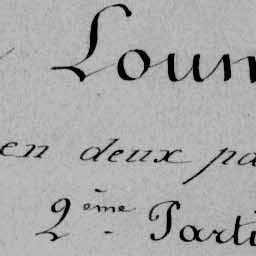 Lour
en deux pa
2ème Parti